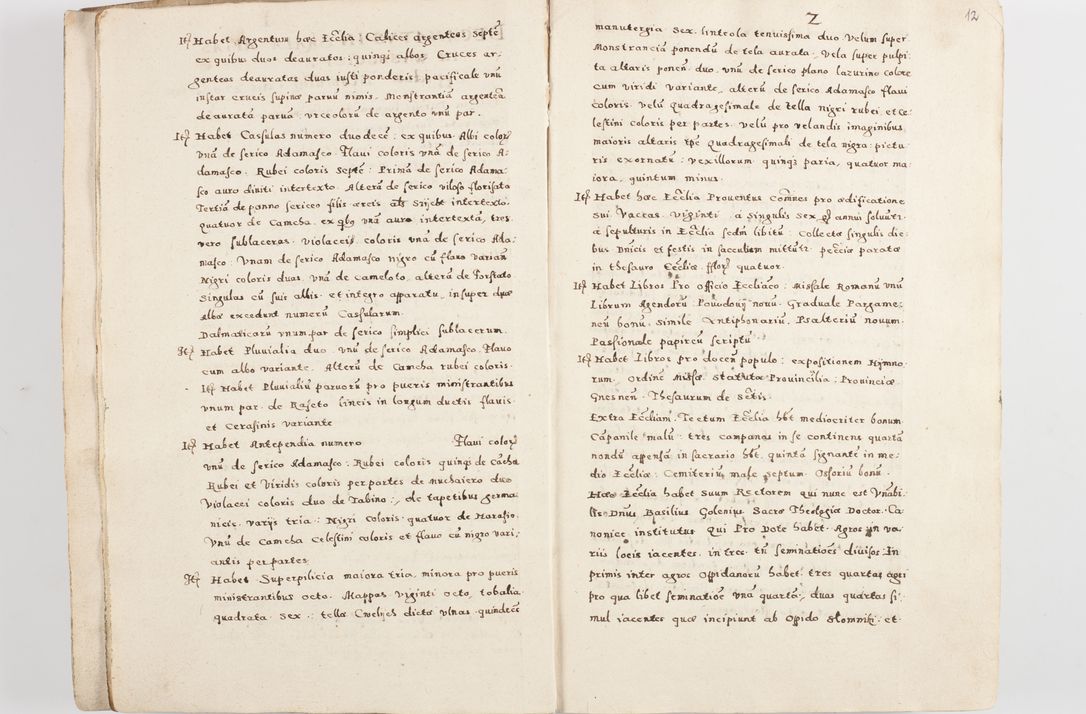 Itē Habet Argentum hæc Ecclia: Calices argenteos septē
ex quibus duos deauratos: quinqȝ albos, Cruces ar,
genteos deauratas duas iusti ponderis: pacificale unū
instar crucis supinæ paruū nimis. Monstrantiā argenteā
deauratā paruā: vrceolorū de argento unū par.
Itē Habet Cassulas numero duodecē: ex quibus Albi colorȝ
vnā de serico Adamasco. Flaui coloris vnā de serico A:
damasco. Rubei coloris septē: Primā de serico Adama:
sco auro diuiti intertexto. Alterā de serico viloso florisata
Tertiā de panno sericeo filis æreis intertexto.
Quatuor de Camcha, ex qbȝ unā auro intertextā, tres
vero sublaceras. Violacei coloris vnā de serico Ada:
masco: Vnam de serico Adamasco nigro cū flauo varian
Nigri coloris duas, vnā de cameloto, alterā de Forstato
Singulas cū suis albis, et integro apparatu, insuper duæ
Albæ excedunt numerū Cassularum.
Dalmaticarū vnum par de serico simplici sublacerum.
Itē Habet Pluuialia duo, unū de serico Adamasco flauo
cum albo variante. Alterū de Camcha rubei coloris.
Itē Habet Pluuialiū paruorū pro pueris ministrantibus
vnum par. de Raseto lineis in longum ductis flauis
et Cerasinis variante
Itē Habet Antependia numero Flaui colorȝ
vnū de serico Adamasco: Rubei coloris quinqȝ de Cācha
Rubei et Viridis coloris per partes de Muchaiero duo
Violacei coloris duo de Tabino: de tapetibus germa
nicis varijs tria: Nigri coloris quatuor de Harasio
Vnū de Camcha Celestini coloris et flauo cū nigro vari,
antis per partes.
Itē Habet Superpilicia maiora tria, minora pro pueris
ministrantibus octo. Mappas viginti octo, tobalia
quadrata sex: tellæ dictæ vlnas quindecē
Z
12
manutergia sex. linteola tenuissima duo Velum super
Monstranciā ponendū de tela aurata. Vela super pulpi
ta altaris ponēn. duo, vnū de serico plano lazurino colore
cum viridi variante, alterū de serico Adamasco flaui
Coloris. Velū quadragesimale de tella nigri rubei et ce:
lestini coloris per partes. Velū pro velandis imaginibus
maioris altaris tpē quadragesimali de tela nigra: pictu
ris exornatū: vexillorum quinqȝ paria, quatuor ma
iora, quintum minus.
Itē Habet hæc Ecclia Prouentus Comnes pro ædificatione
Sui Vaccas viginti á singulis sex annui soluūtr
á sepulturis in Ecclia secdm libitū: Collectæ singulis die:
bus Dnicis et festis in sacculum mittūtr peccīæ paratæ
in thesauro Eccliæ quatuor.
Itē Habet Libros Pro officio Eccliaco: Missale Romanū vnū
Librum Agendorū Powodovij nouū. Graduale Pargame:
neū bonū, simile Antiphonariū, Psalteriū nouum.
Passionale papireū scriptū.
Itē Habet Libros pro docen populo: expositionem Hymno
rum, Ordinē Missæ. Statuta Prouincilia: Prouinciæ
Gnesnen. Thesaurum de Sctis.
Extra Eccliam. Tectum Ecclia hbt mediocriter bonum
Cāpanile malū: tres campanas in se continens quartā
nondū appensā in sacrario hbt, quintā signantē in me:
dio Eccliæ: Cemiteriū male septum. Ossoriū bonū.
Hæc Ecclia habet Suum Rectorem qui nunc est Vnābi
lis Dnus Basilius Golenius Sacræ Theologiæ Doctor. Ca
nonice institutus Qui Pro Dote habet. Agros in va:
riis locis iacentes. in tres tū seminatioēs diuisos: In
primis inter agros Oppidanorū habet tres quartas agri
pro qua libet seminatiōe vnā quartā, duas quartas si:
mul iacentes quæ incipiunt ab Oppido Słomniki, et